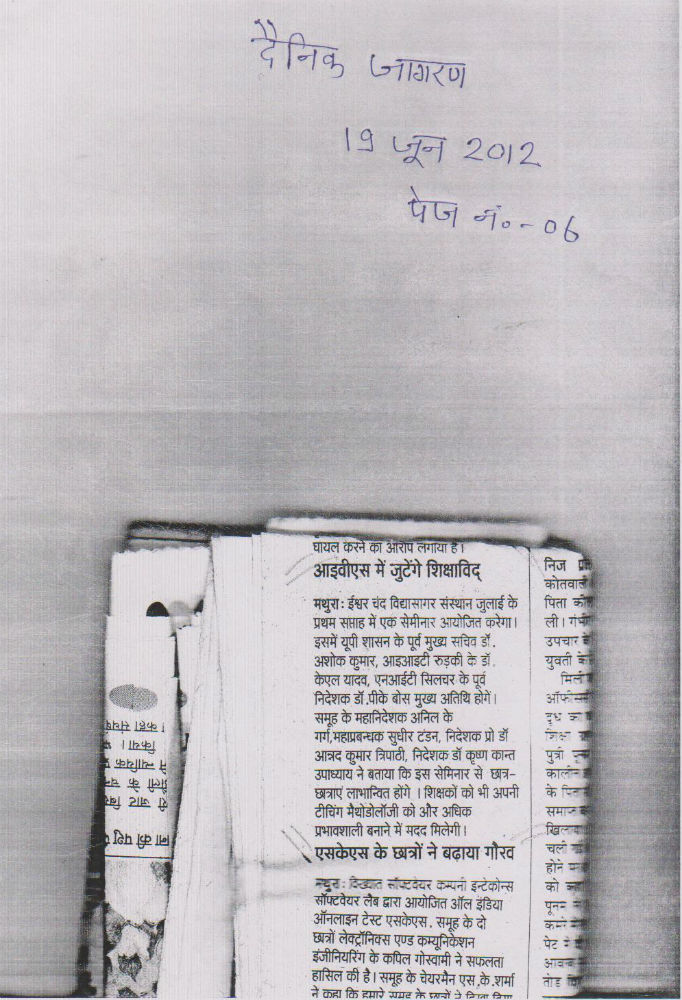 दैनिक जागरण
19 जून 2012
पेज नं.-06
घायल करने का आरोप लगाया है।
आइवीएस में जुटेंगे शिक्षाविद्
मथुरा: ईश्वर चंद विद्यासागर संस्थान जुलाई के
प्रथम सप्ताह में एक सेमीनार आयोजित करेगा।
इसमें यूपी शासन के पूर्व मुख्य सचिव डॉ.
अशोक कुमार, आइआइटी रुड़की के डॉ.
केएल यादव, एनआईटी सिलचर के पूर्व
निदेशक डॉ.पीके बोस मुख्य अतिथि होगें।
समूह के महानिदेशक अनिल के
गर्ग,महाप्रबन्धक सुधीर टंडन, निदेशक प्रो डॉ
आनन्द कुमार त्रिपाठी, निदेशक डॉ कृष्ण कान्त
उपाध्याय ने बताया कि इस सेमिनार से छात्र-
छात्राएं लाभान्वित होंगे । शिक्षकों को भी अपनी
टीचिंग मैथोडोलॉजी को और अधिक
प्रभावशाली बनाने में मदद मिलेगी।
एसकेएस के छात्रों ने बढाया गौरव
मथुरा: विख्यात सॉफ्टवेयर कम्पनी इन्टेकोन्स
सॉफ्टवेयर लैब द्वारा आयोजित ऑल इंडिया
ऑनलाइन टेस्ट एसकेएस. समूह के दो
छात्रों लेक्ट्रॉनिक्स एण्ड कम्यूनिकेशन
इंजीनियरिंग के कपिल गोस्वामी ने सफलता
हासिल की है। समूह के चेयरमैन एस.के.शर्मा
ने कहा कि हमारे समूह के छात्रों ने
निज
कोतवाली
पिता
ली।
उपचार
युवती
दूध
शिक्षा
पुत्री
कालोन
के
चली
होने
को
पूनम
पेट
तोड़